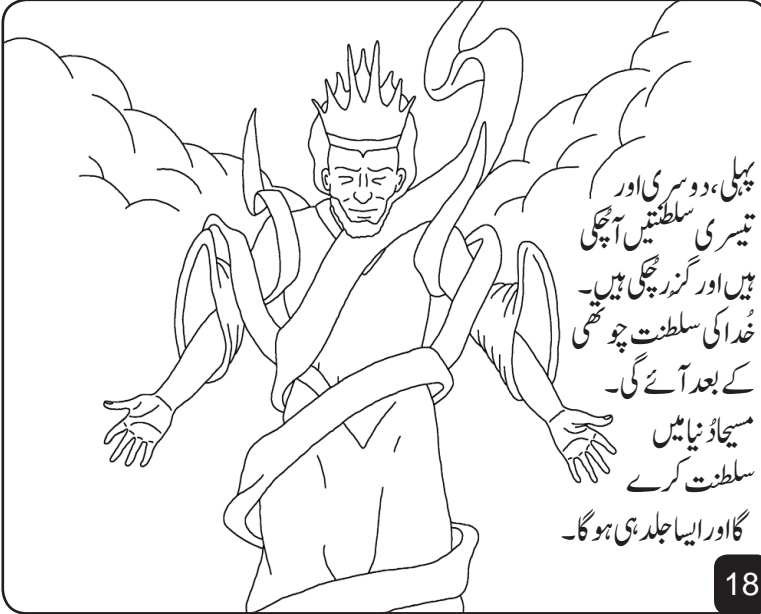 پہلی، دوسری اور
تیسری سلطنتیں آچُکی
ہیں اور گزُر چُکی ہیں۔
خُدا کی سلطنت چوتھی
کے بعد آئے گی۔
مسیحا دُنیا میں
سلطنت کرے
گا اور ایسا جلد ہی ہو گا۔
18